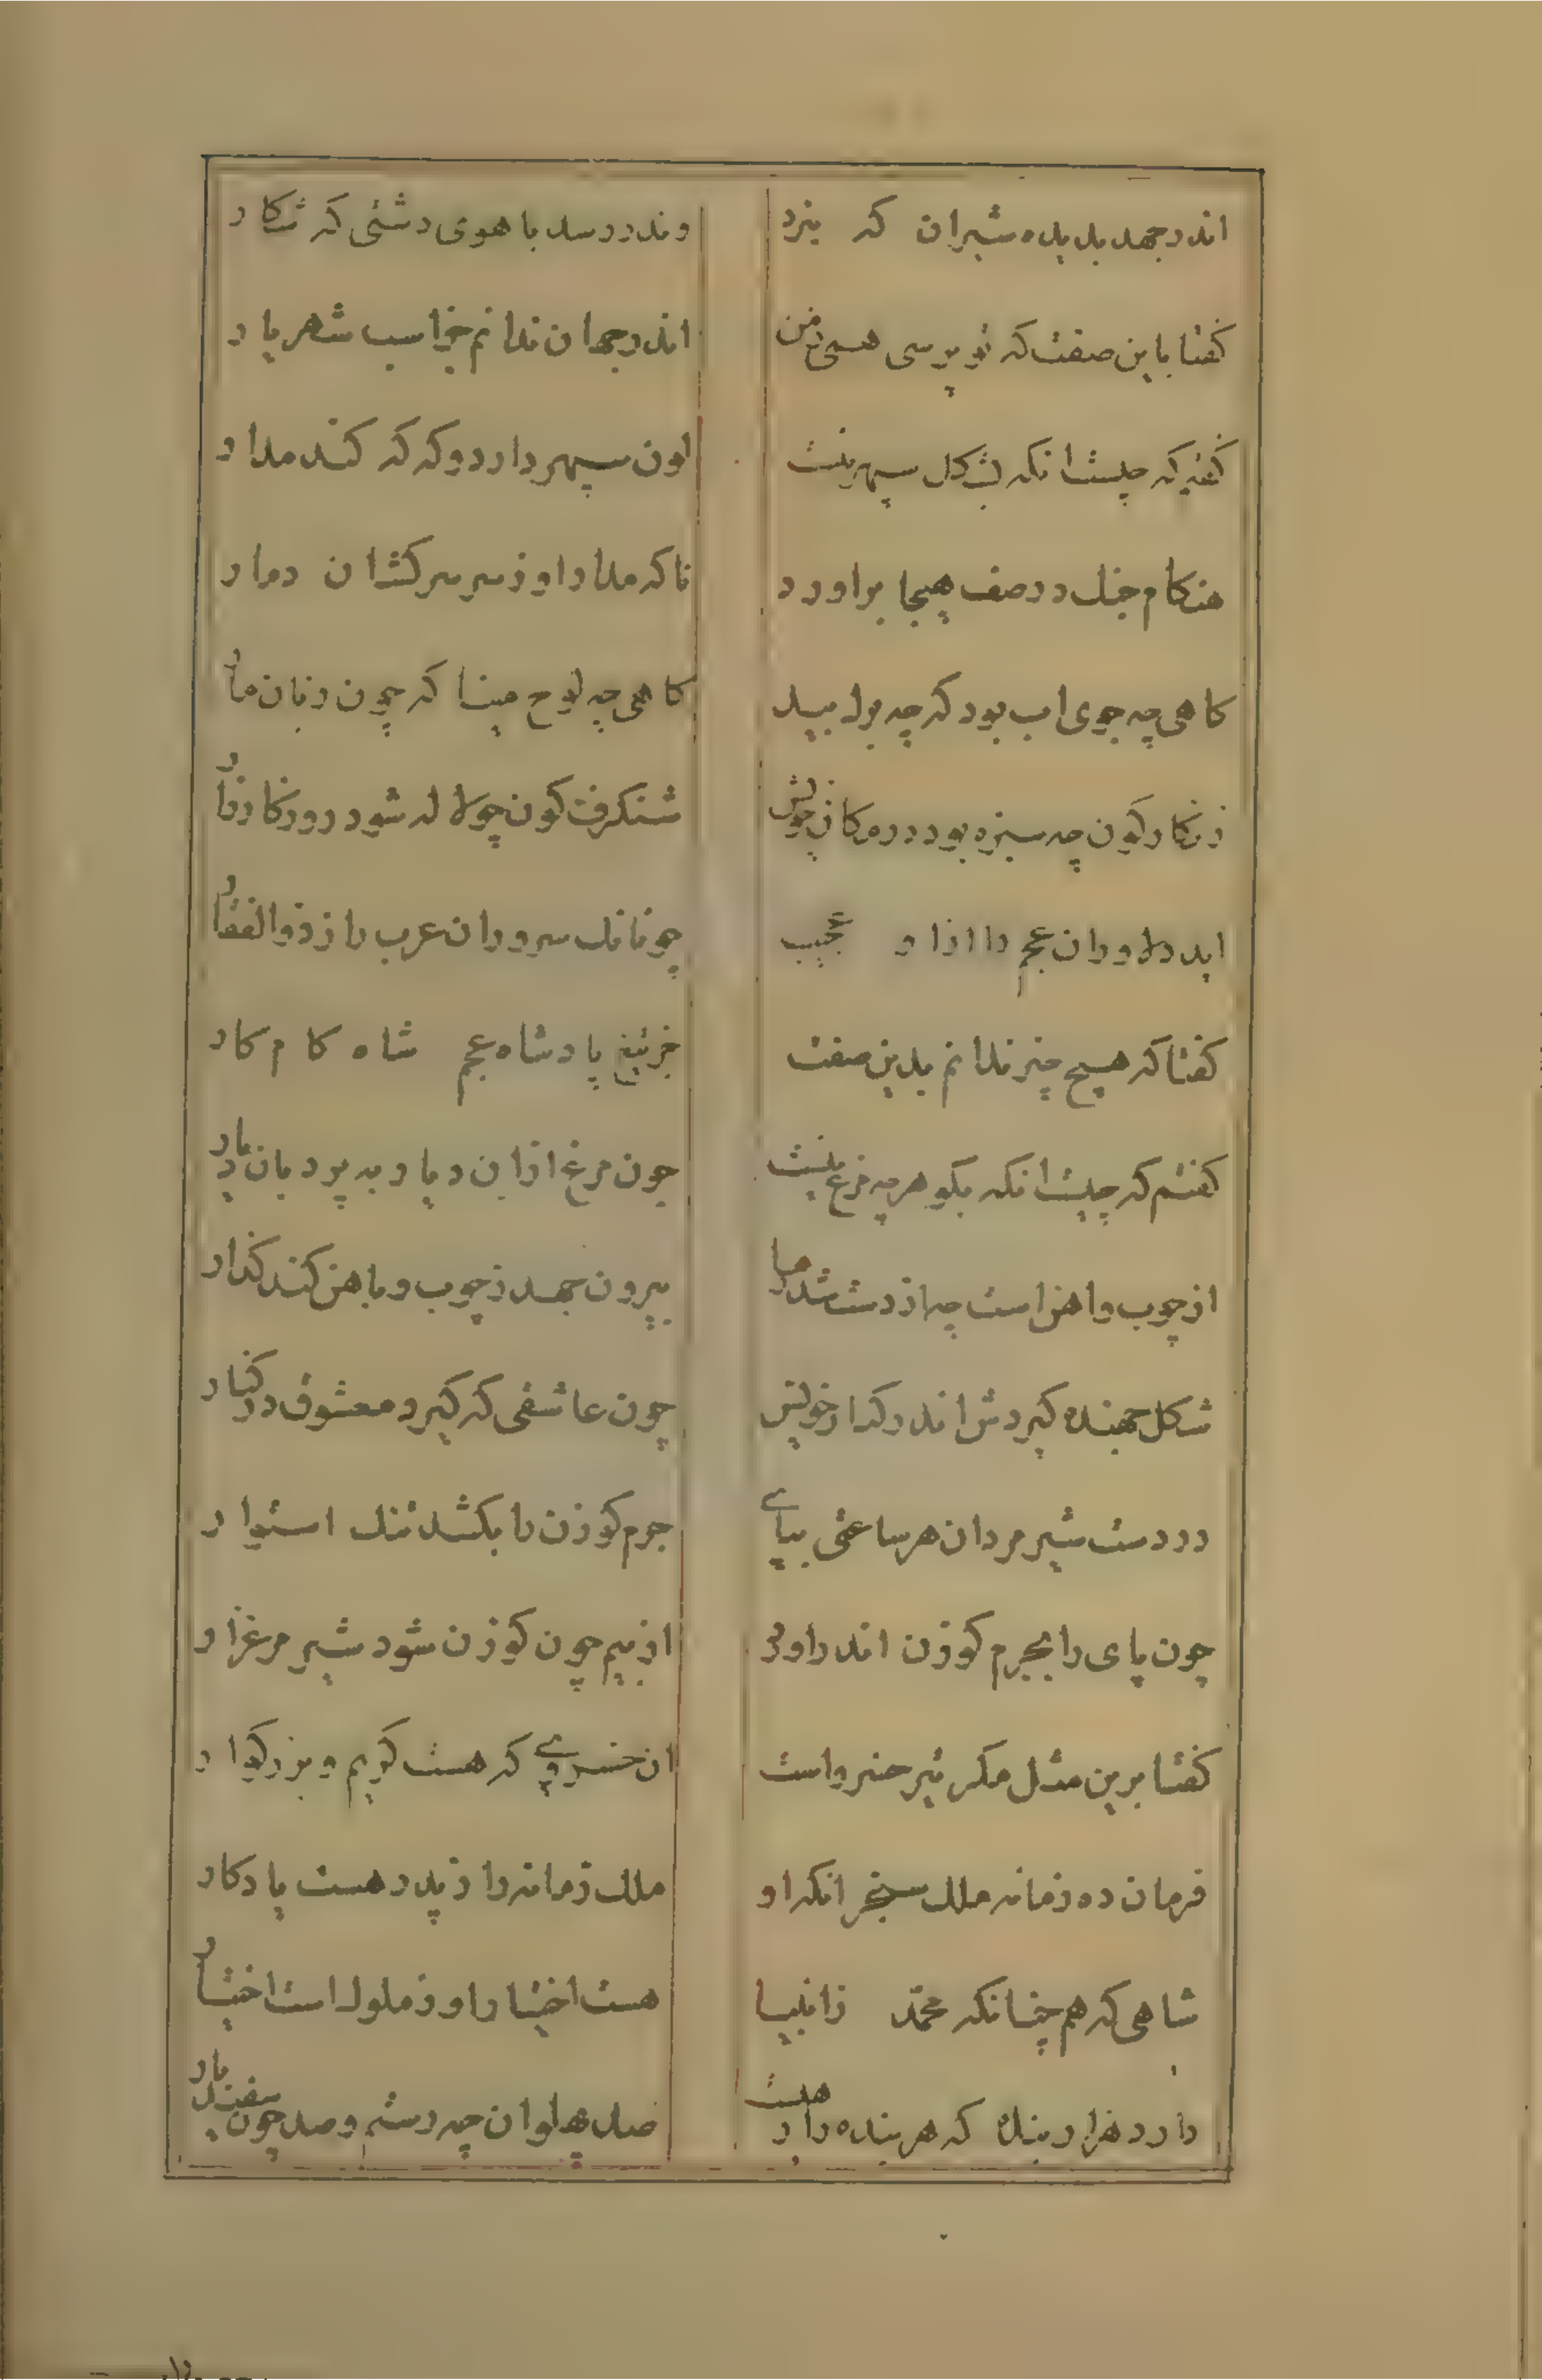 اندر جهد بدیده شیران که نبرد
وندر رسد باهوی دشتی که شکار
گفتا باین صفت که تو پرسی همی ز من
اندر جهان ندانم جز اسب شهریار
گفتم که چیست انکه بشکل سپهر نیست
لون سپهر دارد و که که کند مدار
هنکام جنک در صف هیجا براورد
تا که مدار او ز سر سرکشان دمار
کاهی چه جوی اب بود که چه برک بید
کاهی چه لوح مینا که چون زبان مار
زنکارکون چه سبزه بود در مکان خویش
شنکرف کون چو لاله شود روز کارزار
اید دلاوران عجم را از او عجیب
چونانک سروران عرب را ز ذوالفقار
گفتا که هیچ چیز ندانم بدین صفت
جز تیغ پادشاه عجم شاه کامکار
کفتم که چیست انکه بکو هرچه مرغ نیست
چون مرغ ازاین دیار به پرد بان دیار
از چوب و اهن است چه از دست شد رها
بیرون جهد ز چوب و باهن کند کذار
شکل جهنده کیردش اندر کنار خویش
چون عاشقی که کیرد معشوق در کنار
در دست شیر مردان هر ساعتی بپای
جرم کوزن را بکشد تنک استوار
چون پای را بجرم کوزن اندر اورد
از بیم چون کوزن شود شیر مرغزار
کفتا برین مثل مکر تیر خسرواست
ان خسروی که هست کریم و بزرکوار
فرمان ده زمانه ملک سنجر انکه او
ملک زمانه را ز پدر هست یادکار
شاهی که هم چنانکه محمد ز انبیا
هست اختیار او ز ملوک است اختیار
دارد هزار بنده که هر بنده را بر هست
صد پهلوان چه رستم و صد چون سفندیار